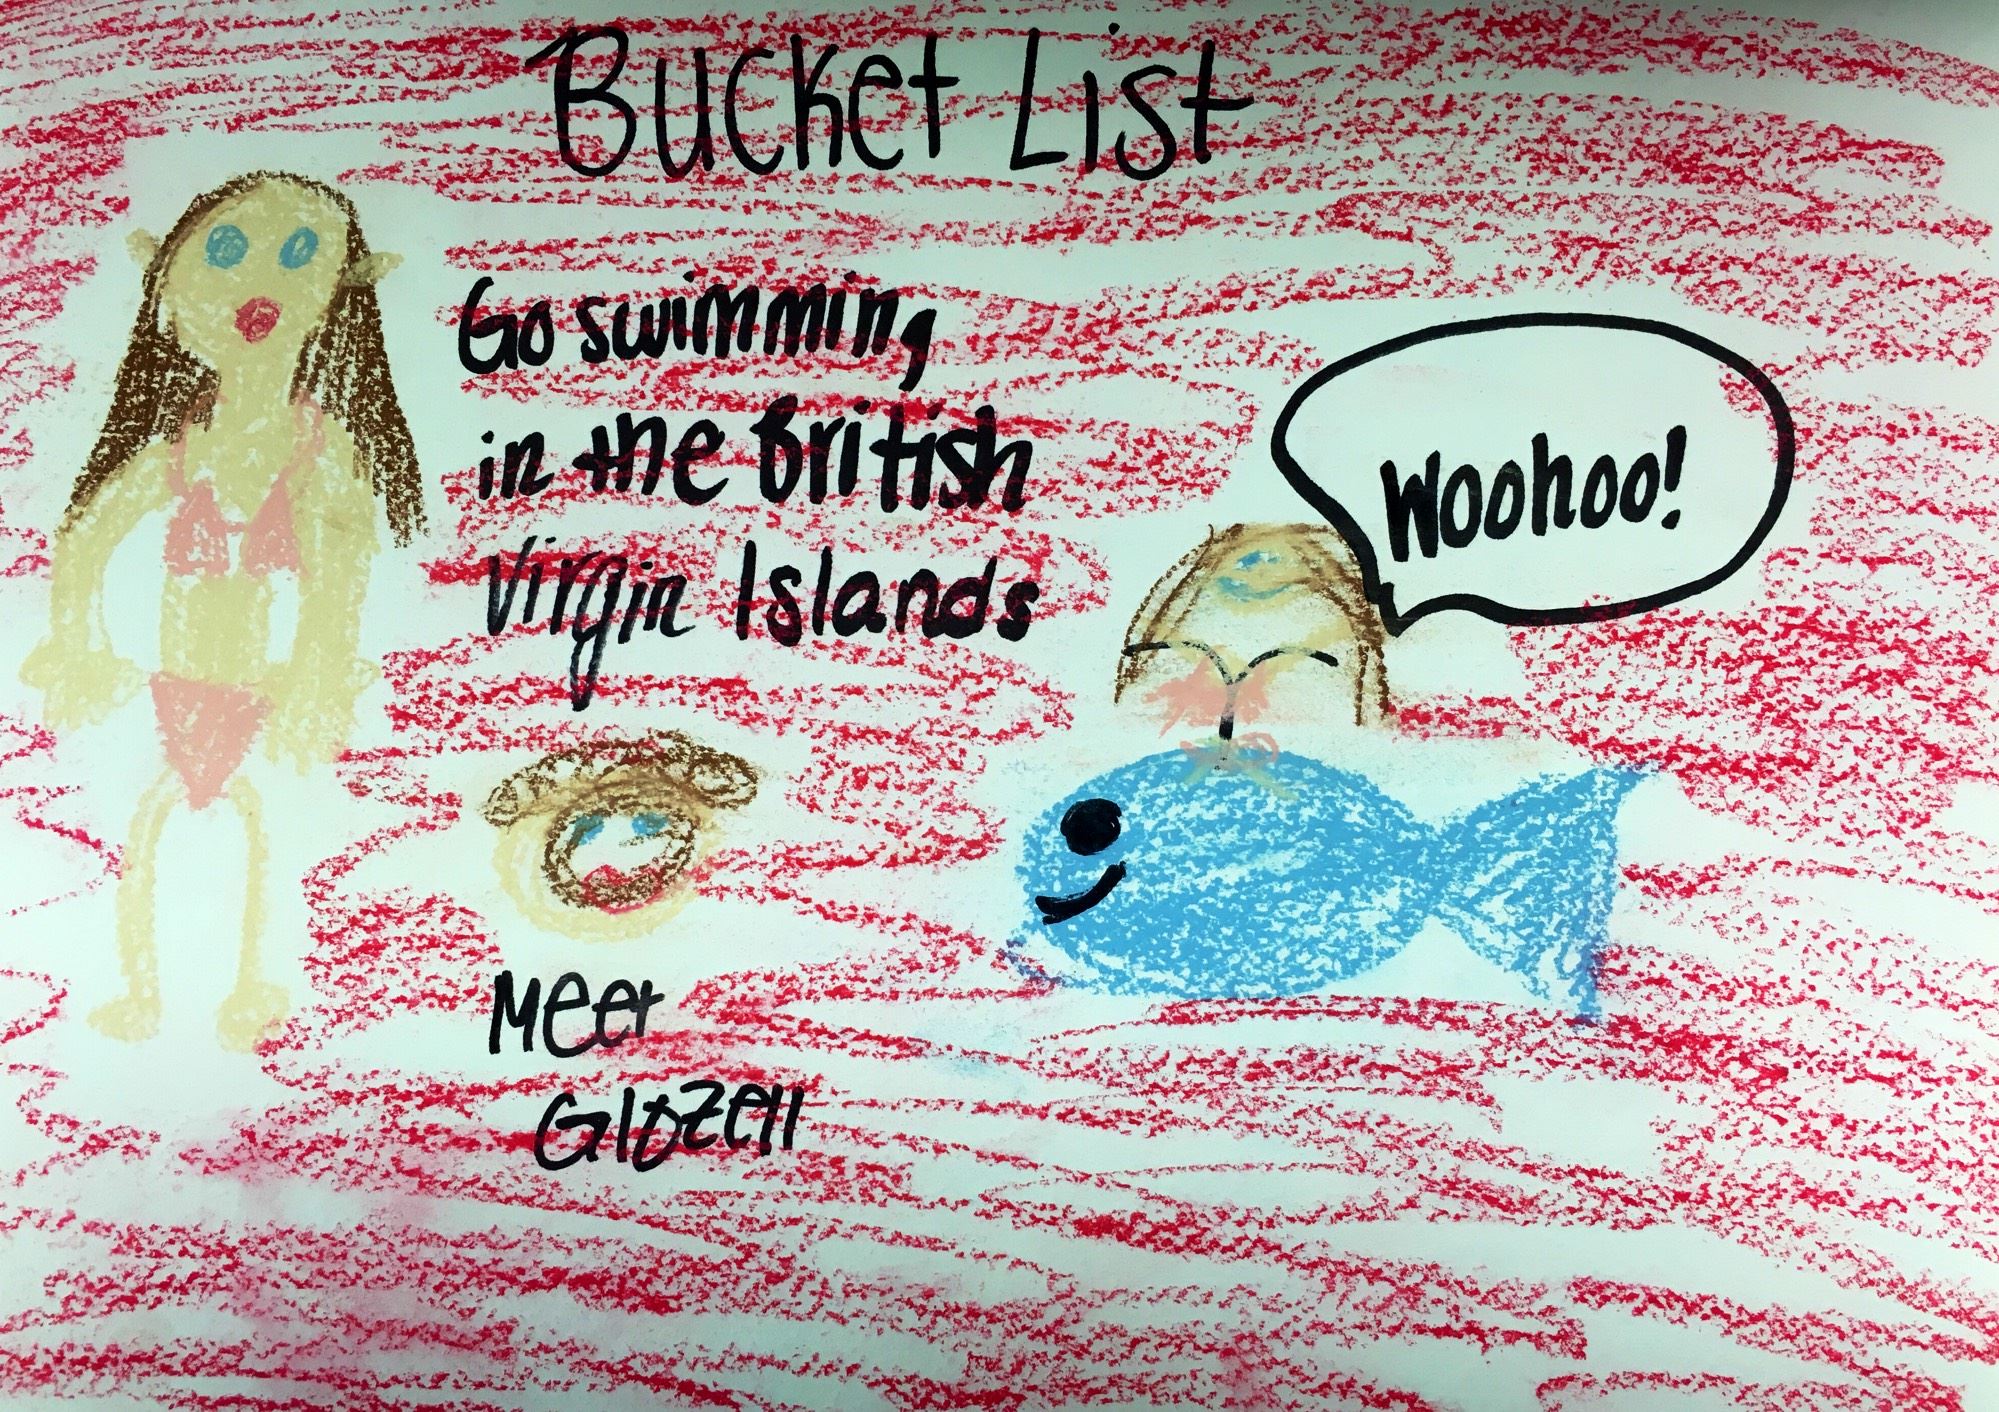 Bucket List
Go swimming
in the British
Virgin Islands
Woohoo!
Meet
Glozell